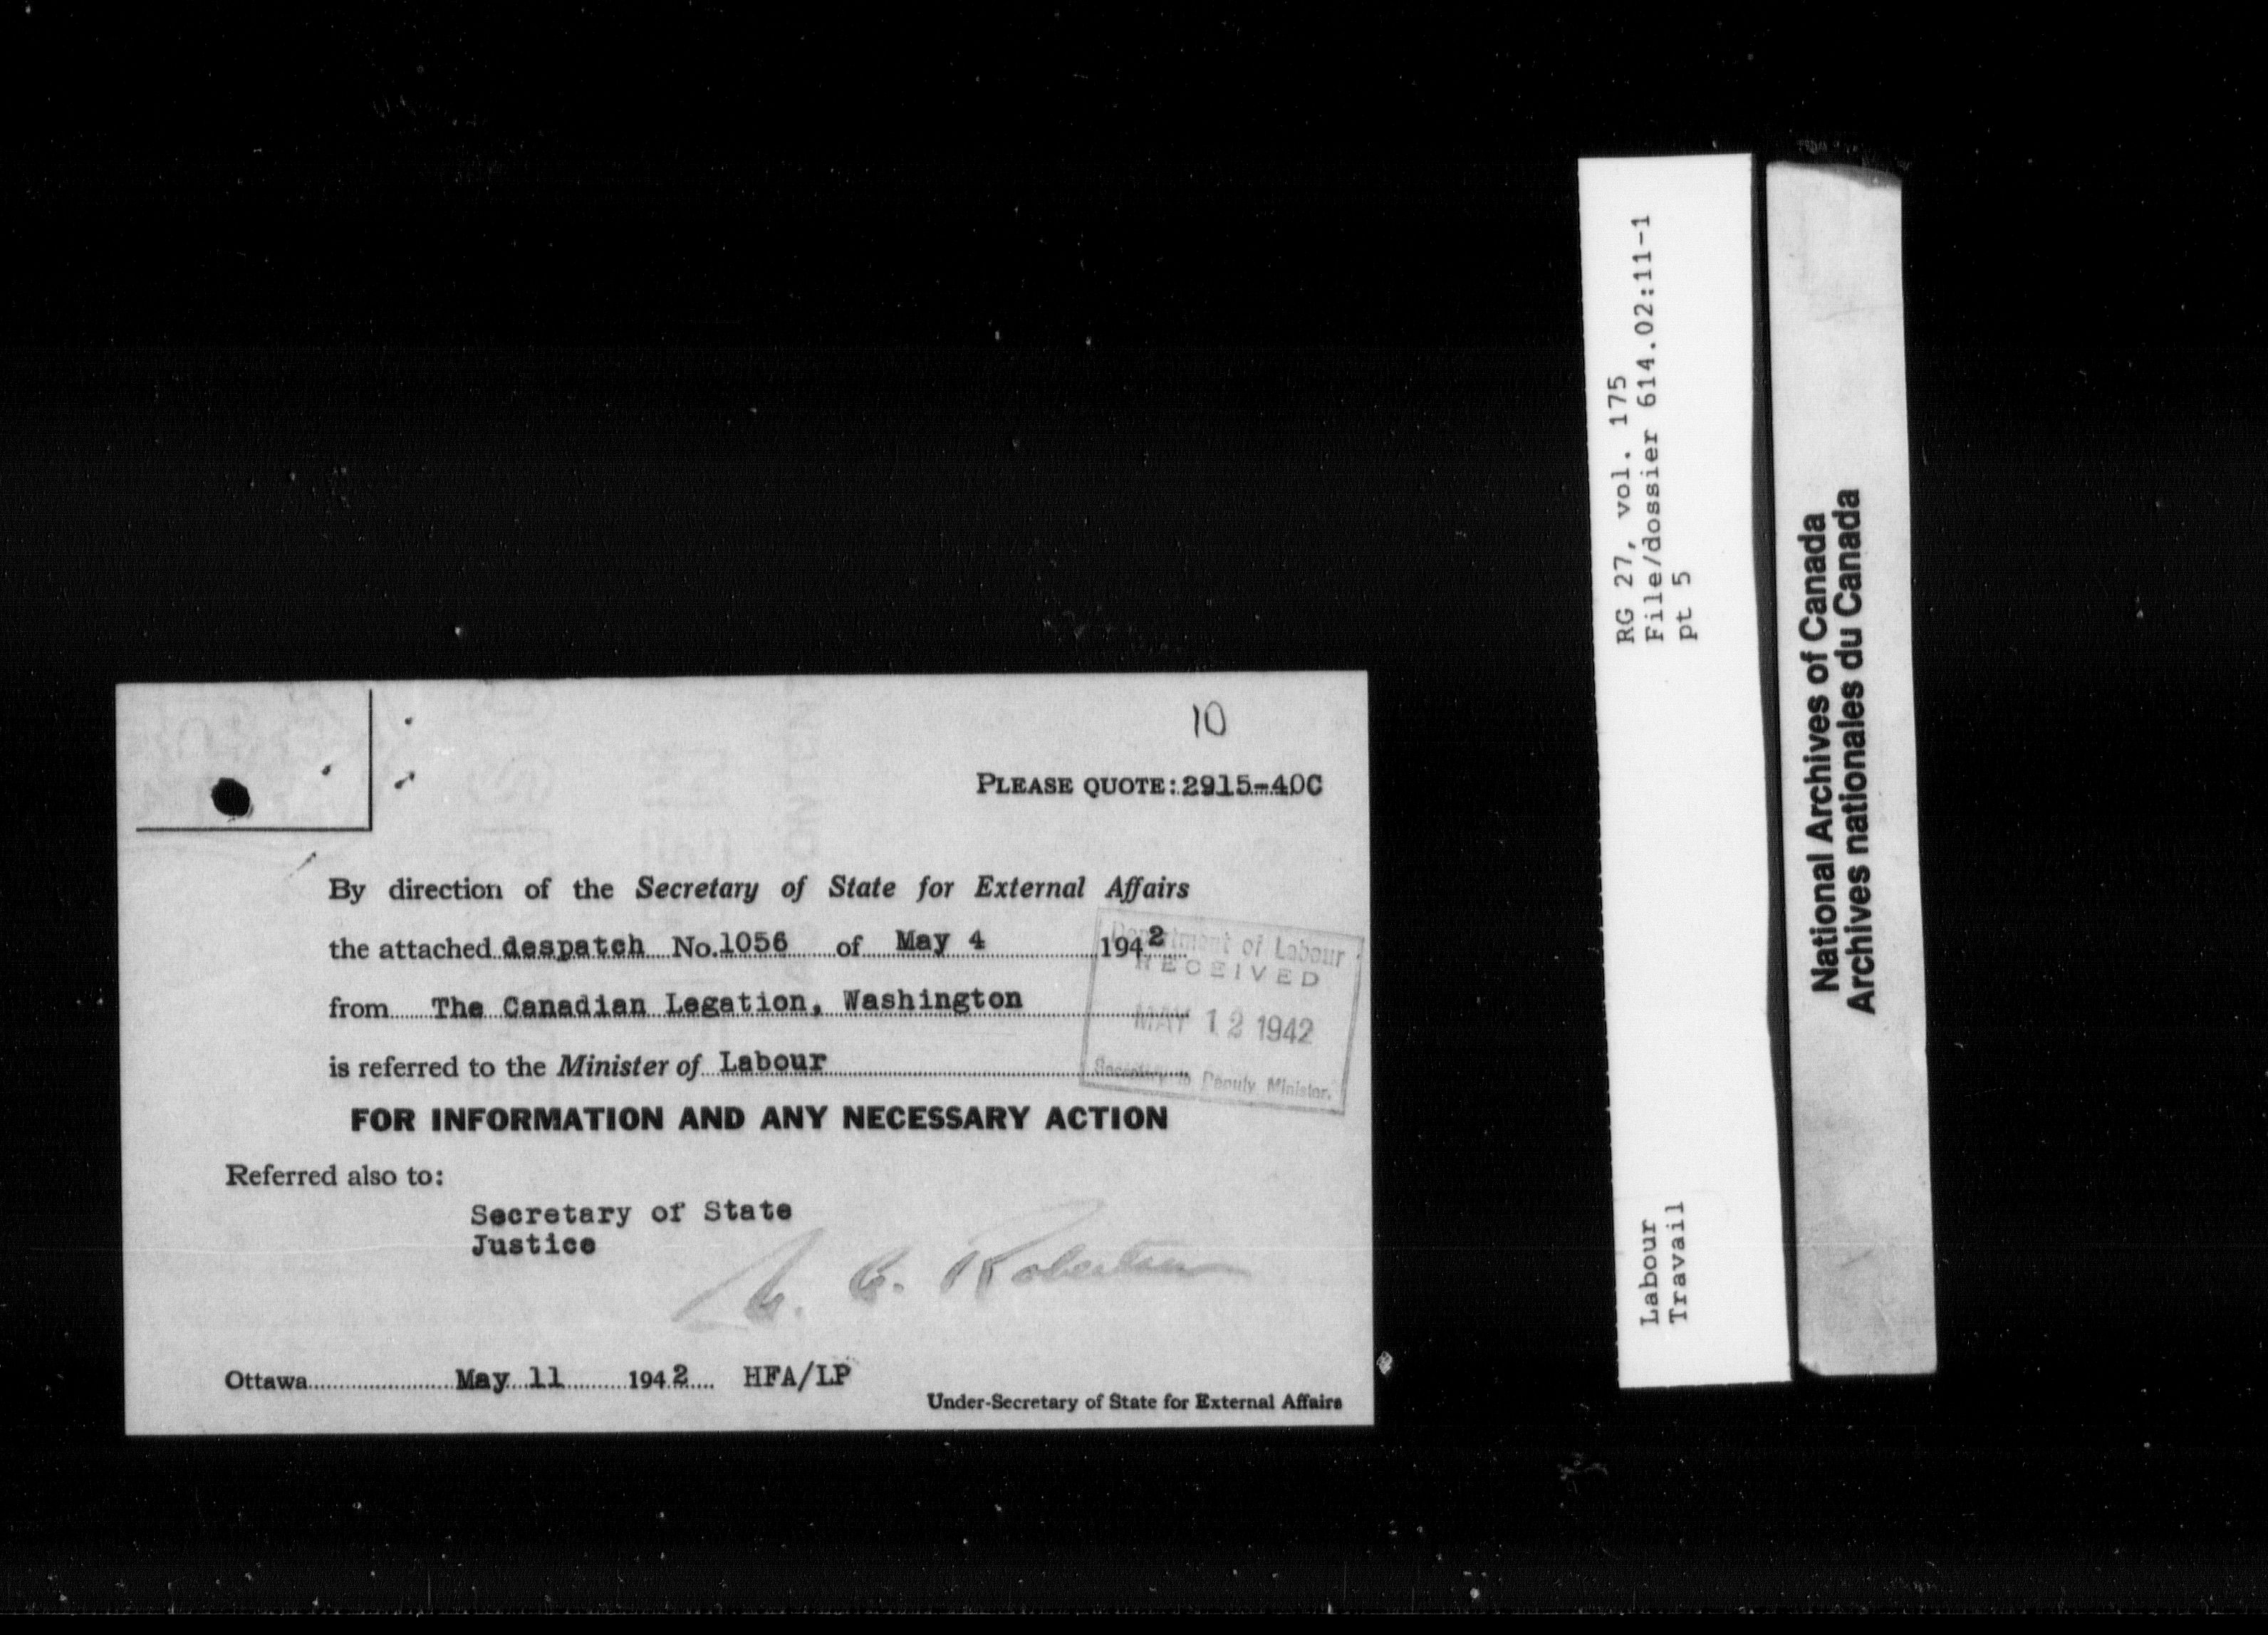 10
PLEASE QUOTE: 2915-40C
By direction of the Secretary of State for External Affairs
the attached despatch No. 1056 of May 4 1942
from The Canadian Legation, Washington
is referred to the Minister of Labour
FOR INFORMATION AND ANY NECESSARY ACTION
Referred also to:
Secretary of State
Justice
Robertson
Ottawa May 11 1942 HFA/LP
Under-Secretary of State for External Affairs
Department of Labour
RECEIVED
MAY 12 1942
Secretary to Deputy Minister.
RG 27, vol. 175
File/dossier 614.02:11-1
pt 5
Labour
Travail
National Archives of Canada
Archives nationales du Canada